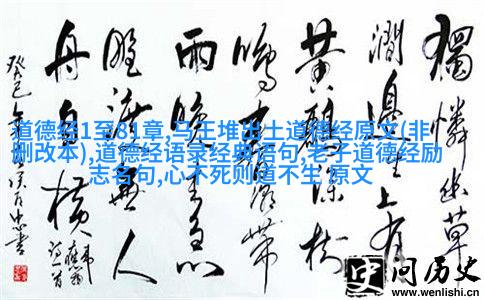 獨憐幽草
澗邊生上有
黄鸝深樹
鳴春潮帶
雨晚來急
野渡無人
舟自橫
道德经1至81章,马王堆出土道德经原文(非
删改本),道德经语录经典语句,老子道德经励
志名句,心不死则道不生 原文
史问历史
www.wenlishi.cn